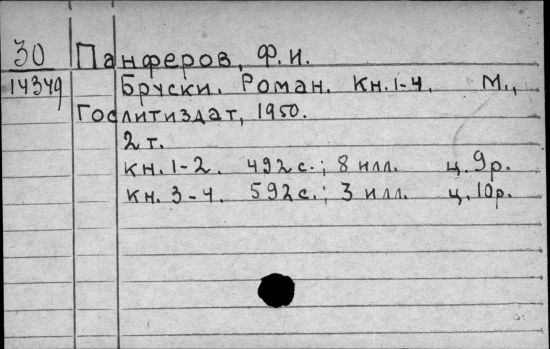 30 Панферов, Ф.И.
14349 Бруски. Роман. Кн.1-4. М.,
Гослитиздат, 1950.
2 т.
кн. 1-2. 492 с.; 8 илл. ц. 9р.
кн. 3-4. 592 с.; 3 илл. ц. 10р.